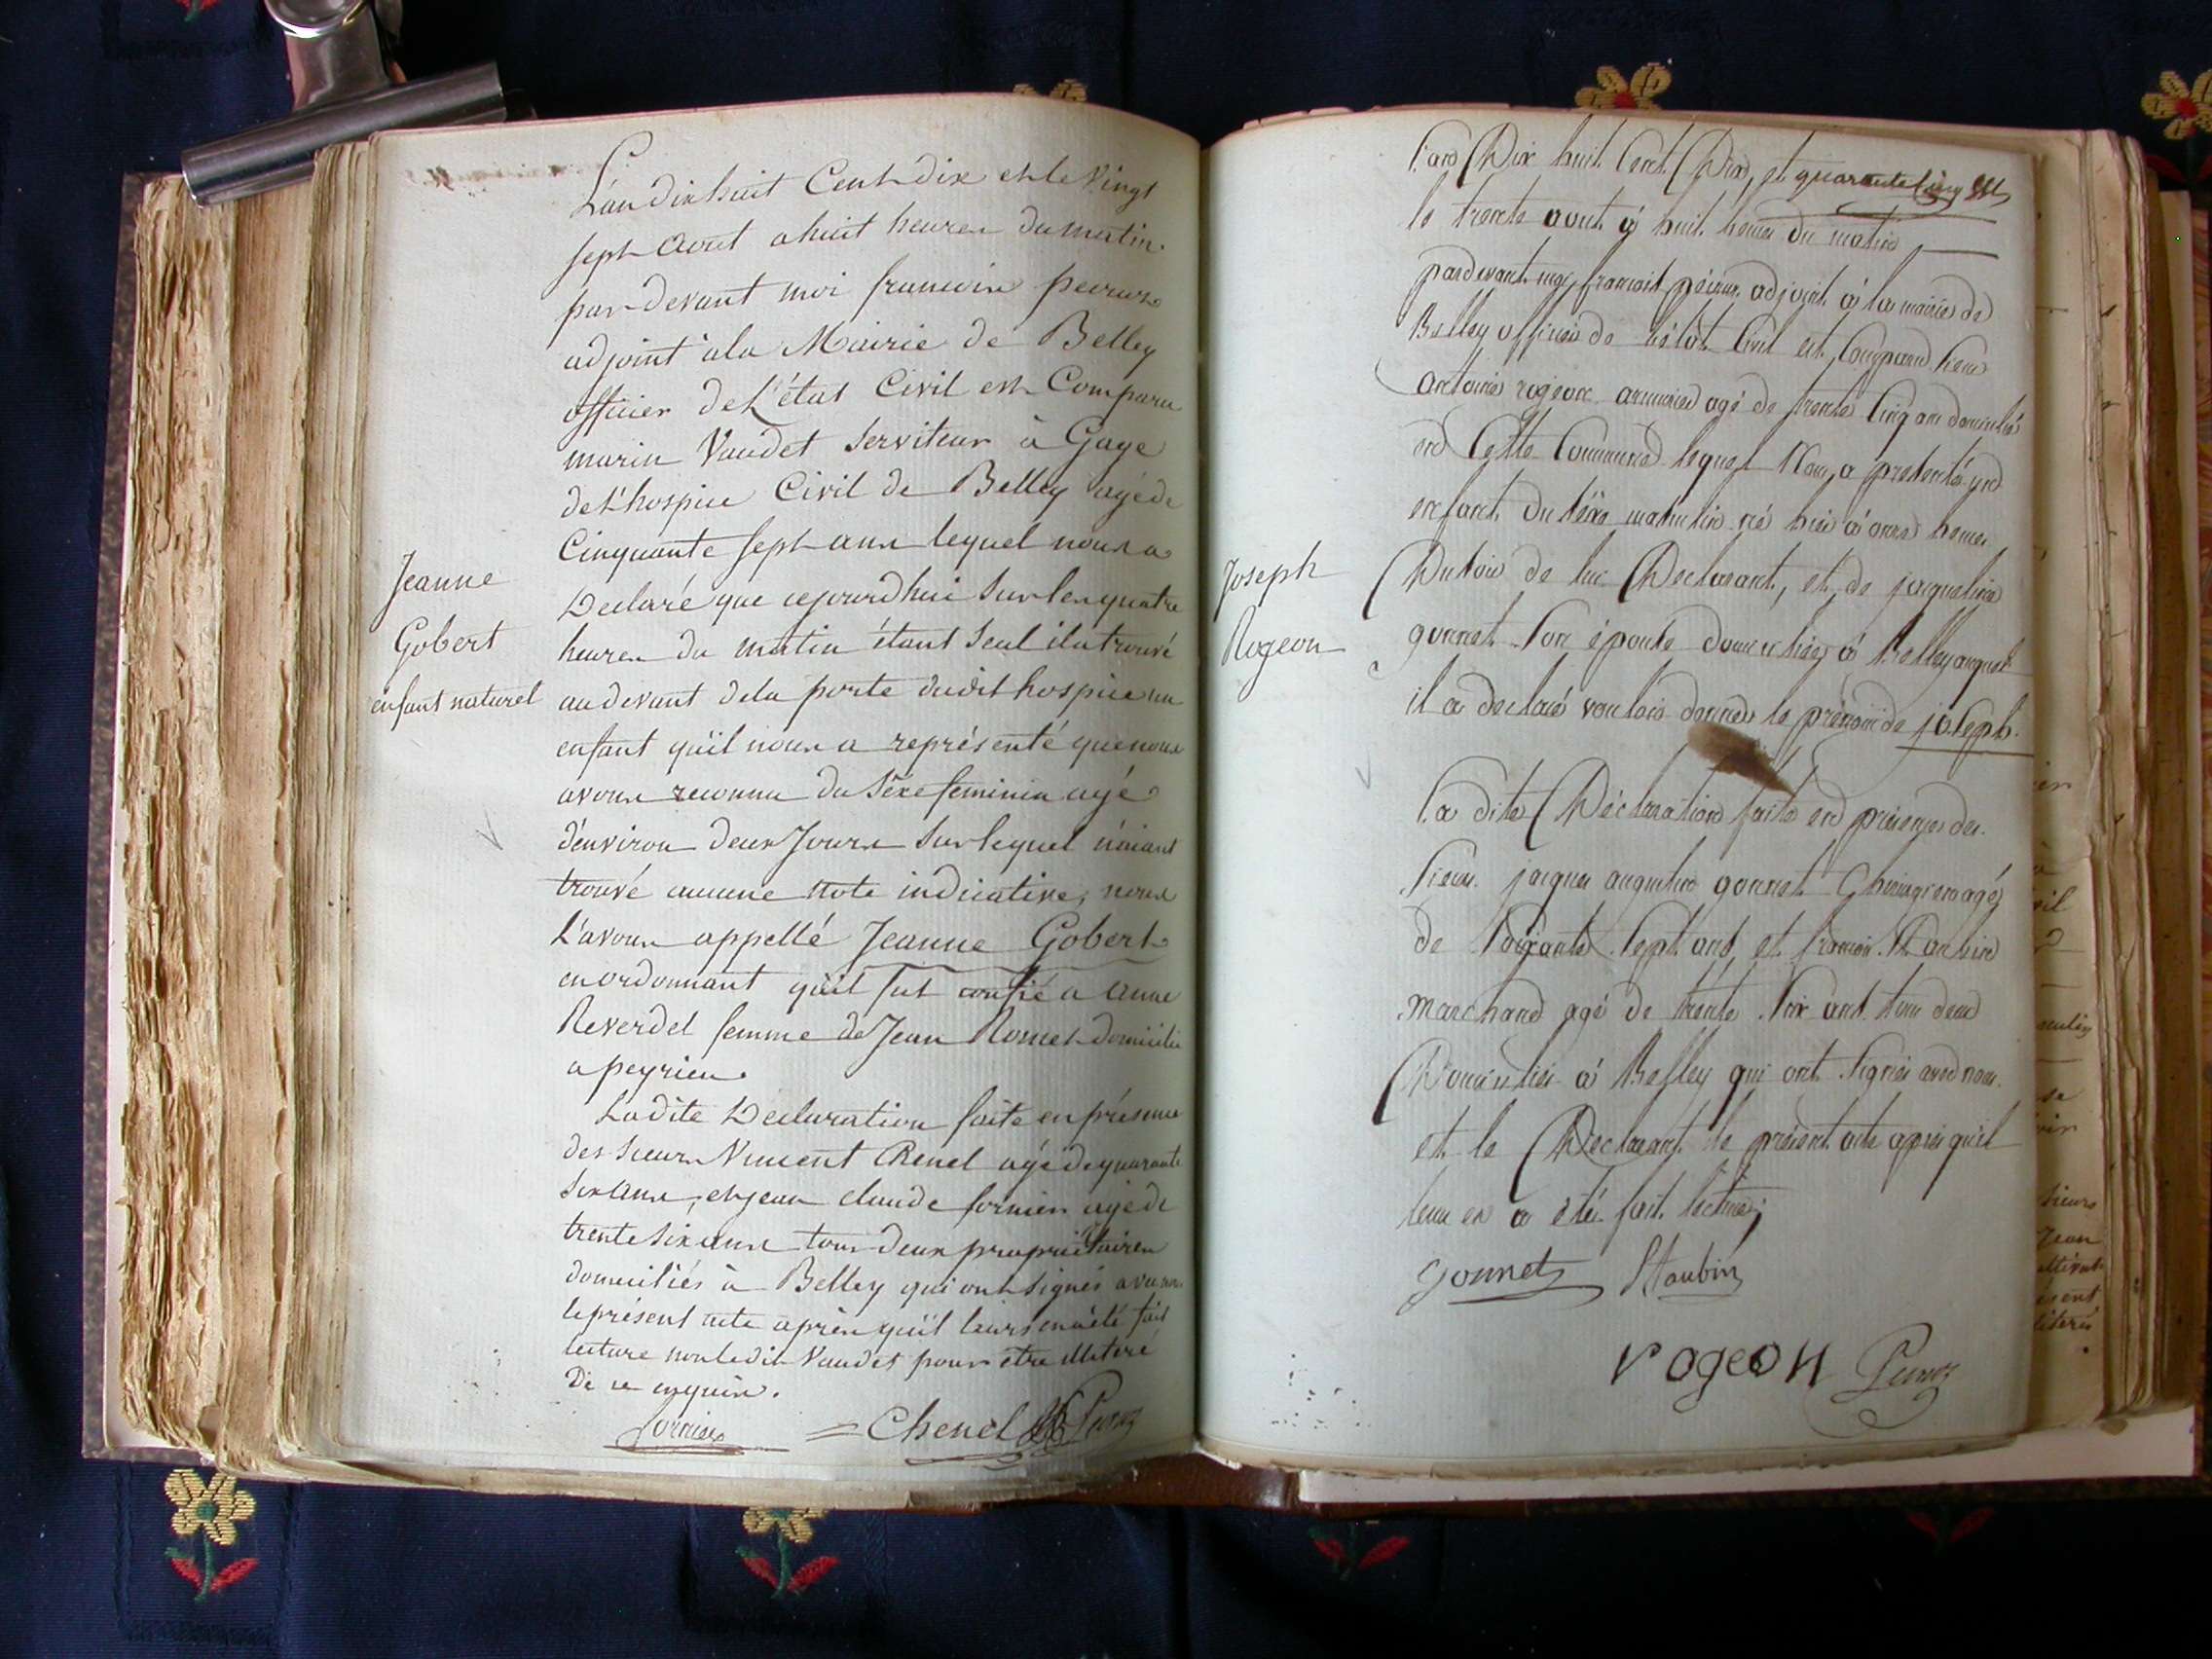 L'an dix huit Cent dix et le Vingt
sept Aout a huit heures du matin
par devant moi francois peirux
adjoint à la Mairie de Belley
officier de L'état Civil est Comparu
marin Vaudet serviteur à Gage
de l'hospice Civil de Belley agé de
Cinquante sept ans lequel nous a
Declaré que cejourd'hui sur les quatre
heures du matin étant seul il a trouvé
au devant de la porte dudit hospice un
enfant qu'il nous a représenté que nous
avons reconnu du séxe feminin agé
d'environ deux Jours sur lequel n'aiant
trouvé aucune note indicative, nous
L'avons appellé Jeanne Gobert
en ordonnant qu'il fut confié a anne
Reverdel femme de Jean Romet domicilié
a peyrieu.
Ladite Declaration faite en présence
des sieurs Vincent Chenel agé de quarante
six ans, et jean claude fornier agé de
trente six ans tous deux propriétaires
domiciliés à Belley qui ont signés avec nous
le présent acte après qu'il leurs en a été fait
lecture non ledit Vaudet pour être illiteré
De ce enquis.
fornier = Chenel
Jeanne
Gobert
enfant naturel
l'an Dix huit Cent Dix, et
le trente aout à huit heures du matin
pardevant moi francois peirux adjoint à la mairie de
Belley officier de l'état Civil est Comparu sieur
antoine rogeon armurier agé de trente Cinq ans domicilié
en Cette Commune lequel Nous a presenté un
enfant du séxe masculin né hier à onze heures
Du soir de lui Declarant, et de jacqueline
gonnet son épouse domiciliée à Belley auquel
il a declaré vouloir donner le prénom de joseph.
la dite Déclaration faite en présence des
sieurs jacques augustin gonnet Chirurgien agé
de soixante sept ans et francois St aubin
marchand agé de trente six ans tous deux
Domiciliés à Belley qui ont signés avec nous
et le Declarant le présent acte après qu'il
leur en a été fait lecture;
Gonnet St aubin
rogeon
Joseph
Rogeon